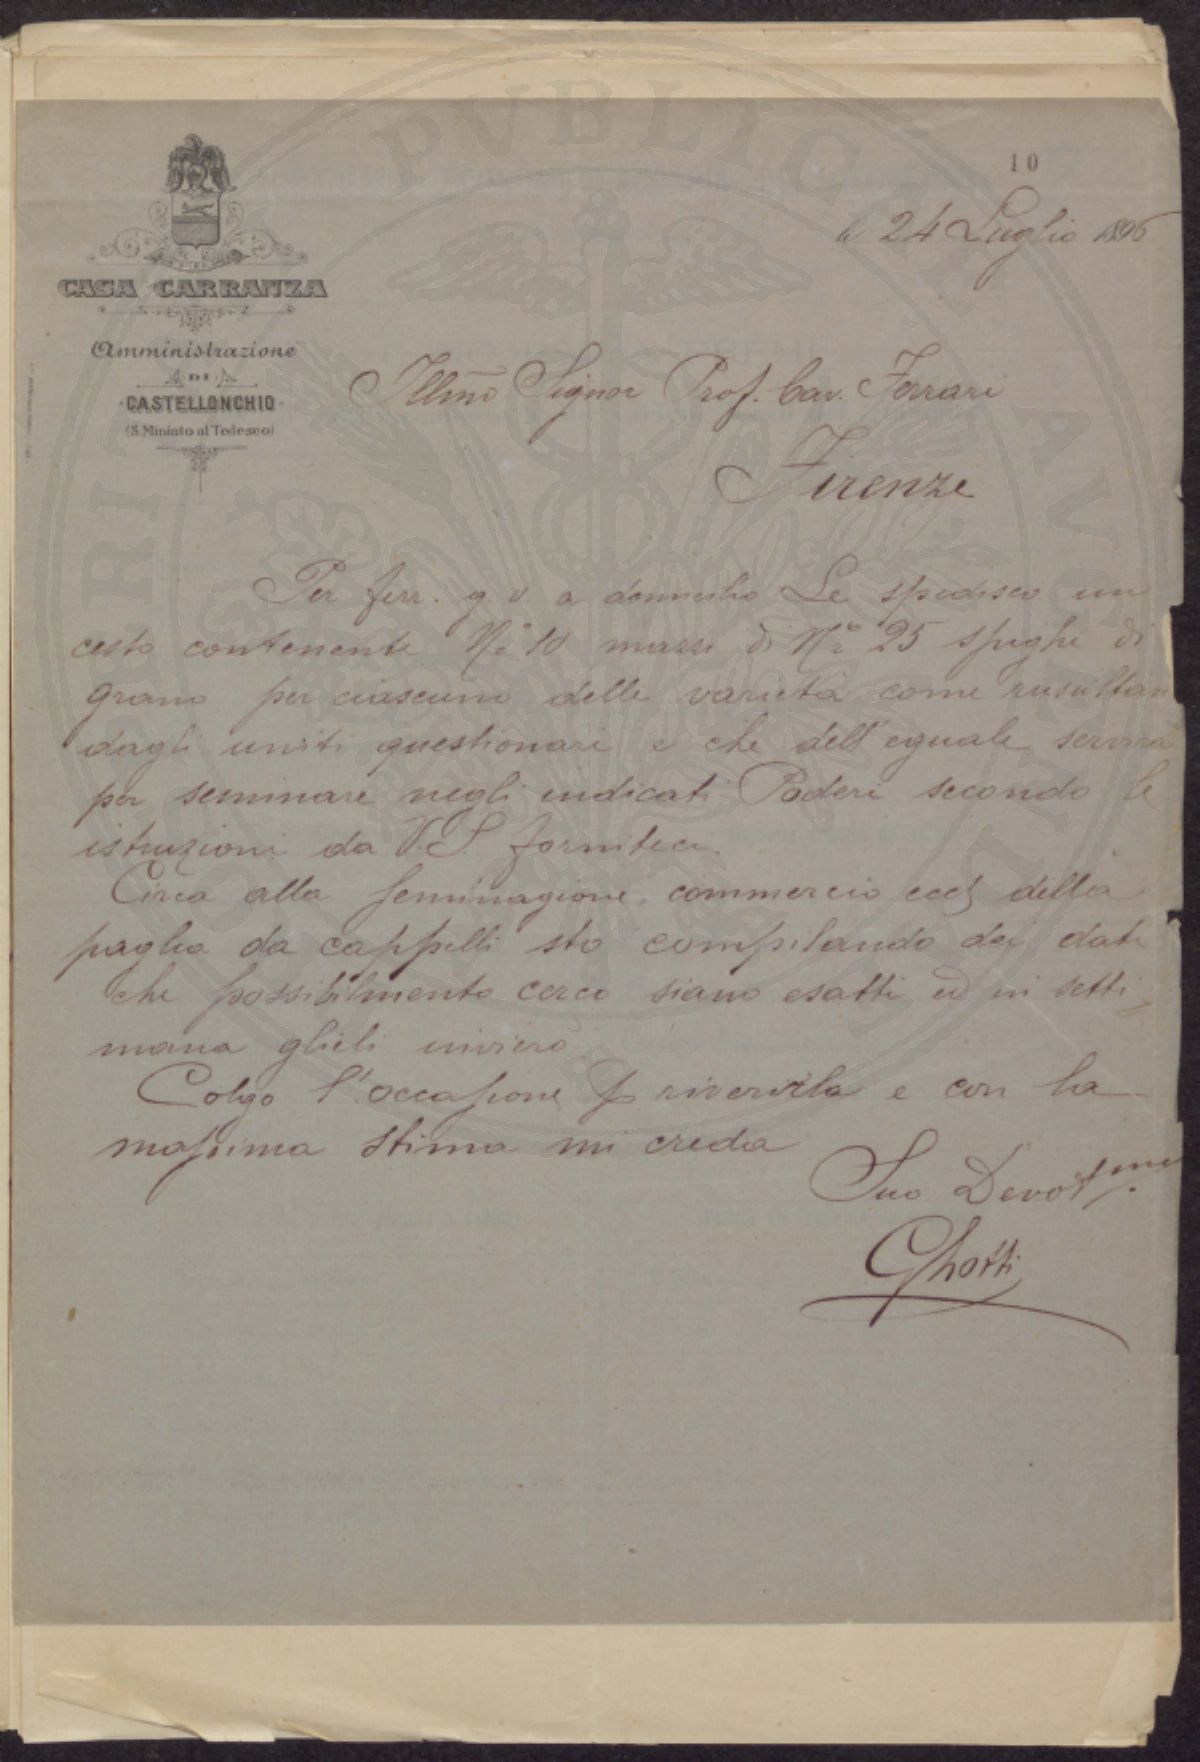 10
li 24 Luglio 1896
CASA CARRANZA
Amministrazione
DI
CASTELLONCHIO
(S. Miniato al Tedesco)
Illmo Signor Prof. Cav. Ferrari
Firenze
Per ferr. g. v. a domicilio Le spedisco un
cesto contenente No 10 mazzi di No 25 spighe di
grano per ciascuno delle varietà come risultan
dagli uniti questionari e che dell'eguale servirà
per seminare negli indicati Poderi secondo le
istruzioni da V. S. forniteci.
Circa alla seminagione, commercio ecc della
paglia da cappelli sto compilando dei dati
che possibilmente cerco siano esatti ed in setti=
mana glieli invierò
Colgo l'occasione riverirla e con la
massima stima mi creda
Suo Devotmo
Ghotti
PVBLICA